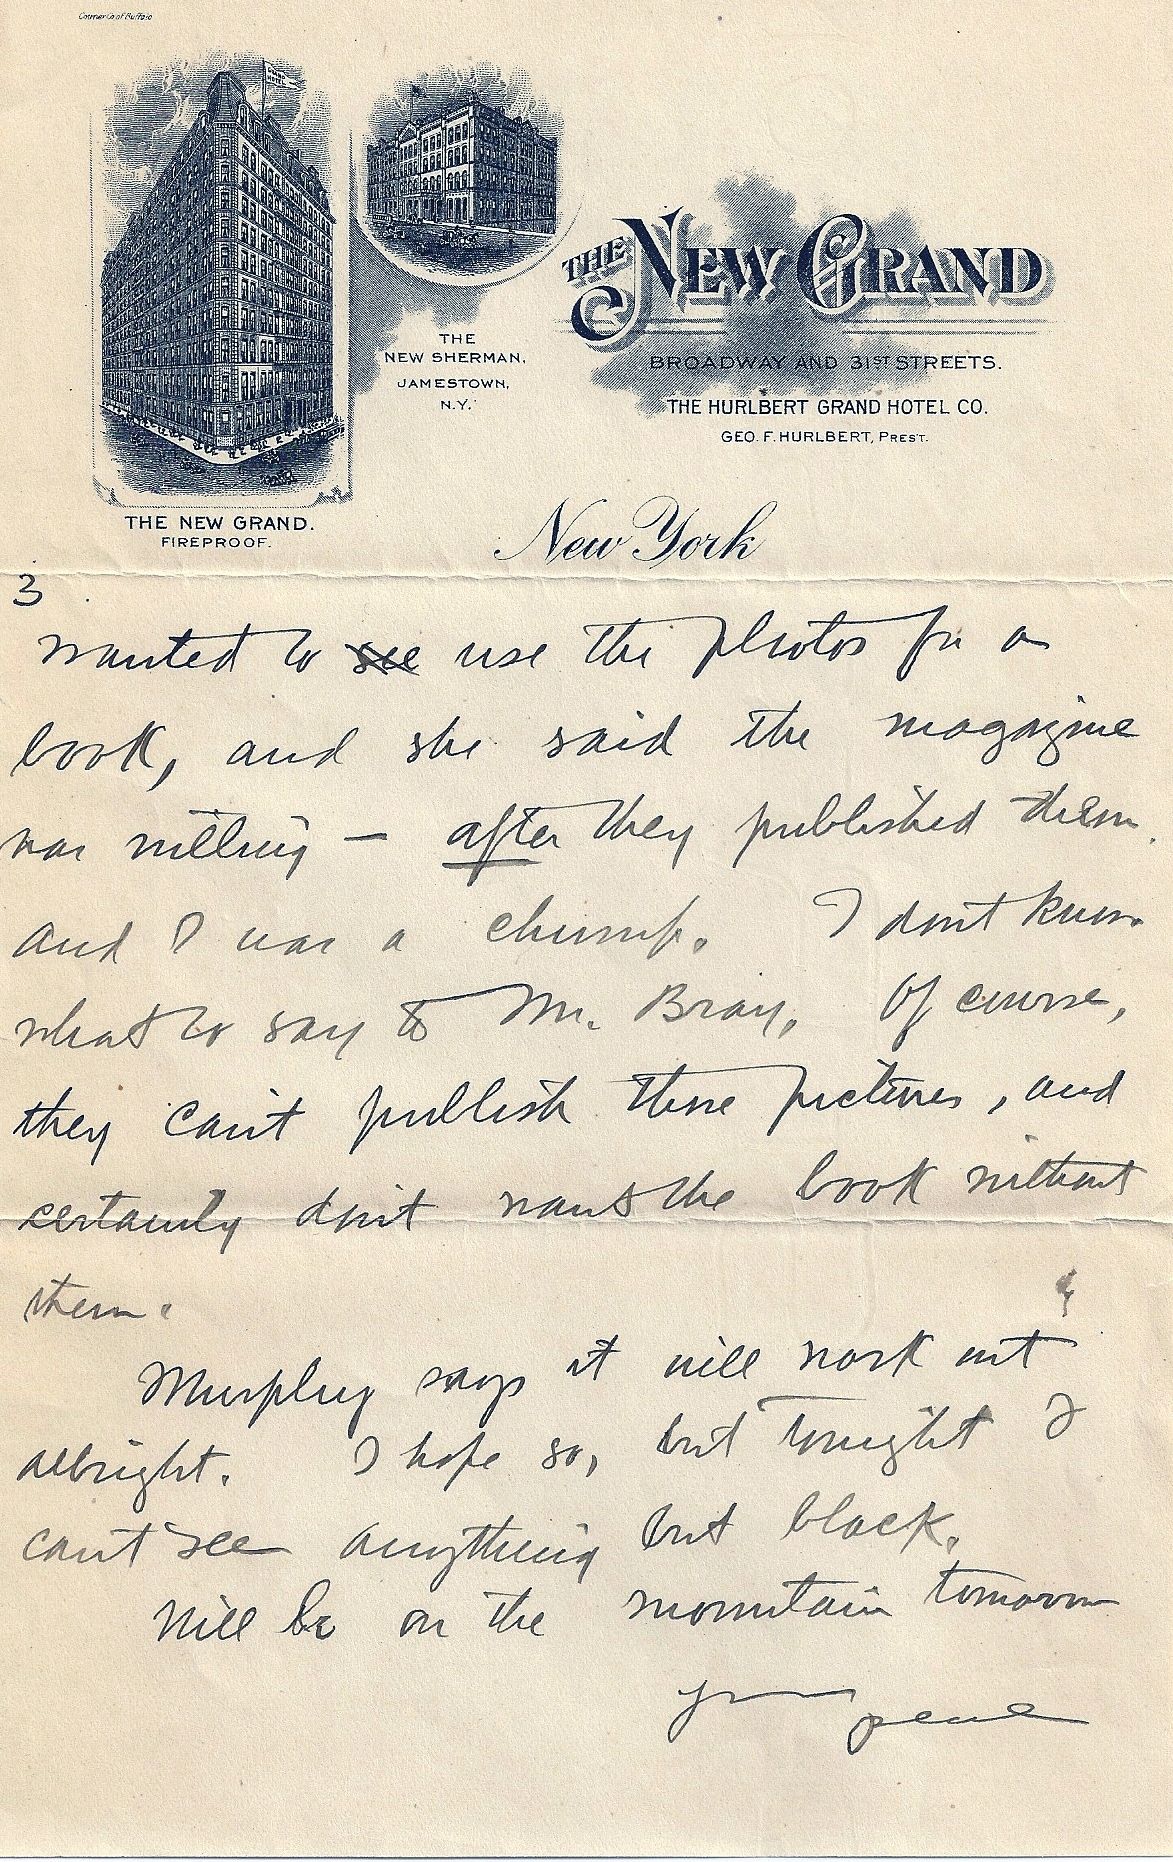 Courier Co of Buffalo
THE NEW GRAND
BROADWAY AND 31ST STREETS.
THE HURLBERT GRAND HOTEL CO.
GEO. F. HURLBERT, PREST.
THE
NEW SHERMAN,
JAMESTOWN,
N.Y.
THE NEW GRAND.
FIREPROOF.
New York
3
wanted to see use the photos for a
book, and she said the magazine
was willing — after they published them.
and I was a chump. I don't know
what to say to Mr. Bray. Of course,
they can't publish those pictures, and
certainly don't want the book without
them.
Murphy says it will work out
allright. I hope so, but tonight I
can't see anything but black.
Will be on the mountain tomorrow